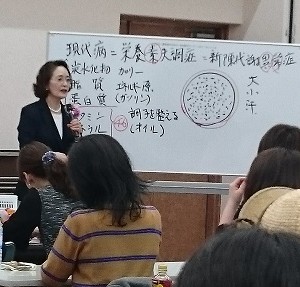 現代病 = 栄養素失調症 = 新陳代謝異常症
炭水化物 カロリー
脂質 エネルギー源
蛋白質 (ガソリン)
ビタミン
ミネラル
調子を整える
(オイル)
大
小
汗